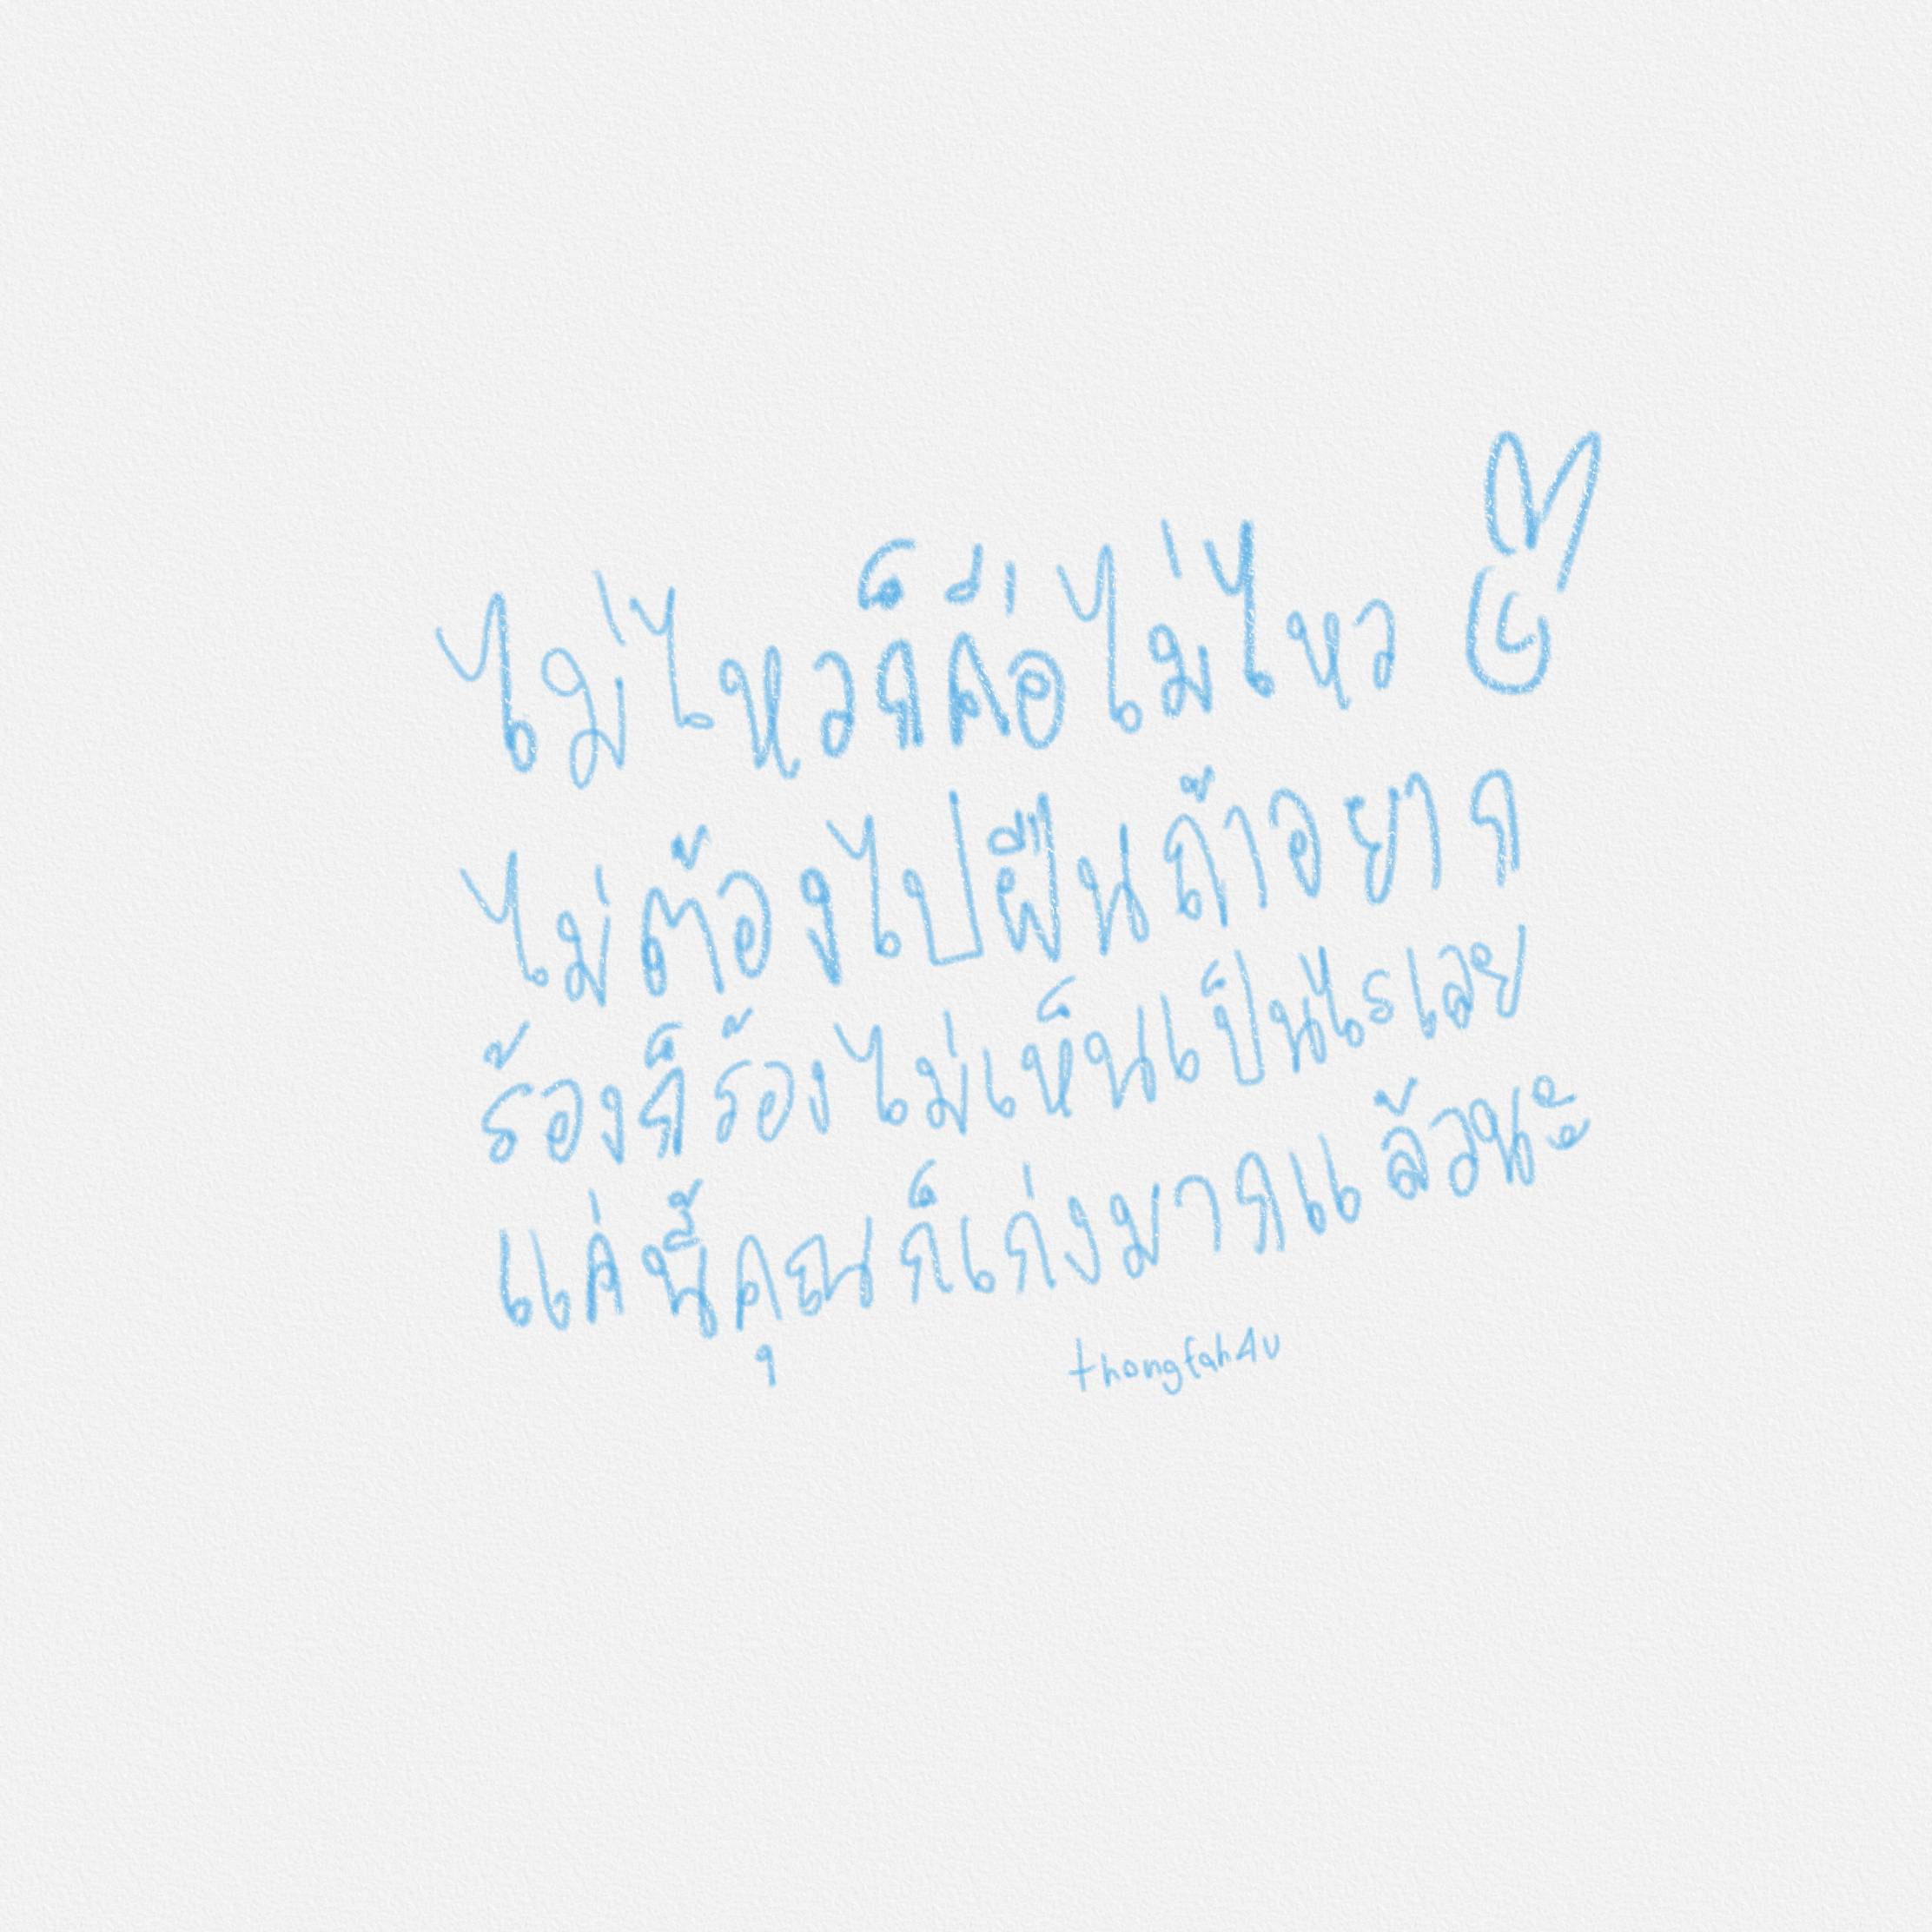 ไม่ไหวก็คือไม่ไหว
ไม่ต้องไปฝืนถ้าอยาก
ร้องก็ร้องไม่เห็นเป็นไรเลย
แค่นี้คุณก็เก่งมากแล้วนะ
thongfah4u